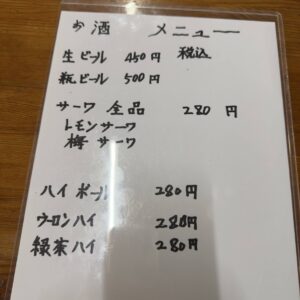 お酒 メニュー
生ビール 450円 税込
瓶ビール 500円
サーワ 全品 280円
トモンサーワ
梅サーワ
ハイボール 280円
ウーロンハイ 280円
緑茶ハイ 280円